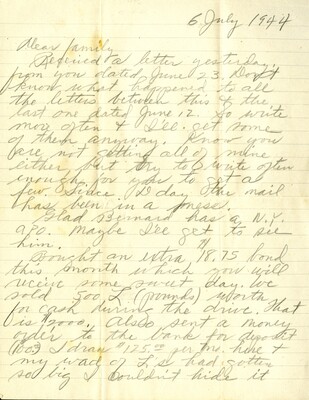 6 July 1944
Dear family,
Received a letter yesterday
from you dated June 23. Don't
know what happened to all
the letters between this & the
last one dated June 12. So write
more often & I'll get some
of them anyway. Know you
are not getting all of mine
either, but try to write often
enough in order to get a
few. Since D day the mail
has been in a mess.
Glad Bernard has a N.Y.
APO. Maybe I'll get to see
him.
Bought an extra 18.75 bond
this month which you will
receive some sweet day. We
sold 500 £ (pounds) worth
for cash during the drive. That
is 2000. Also sent a money
order to the bank for deposit
I draw $125.00 per mo. here &
my wad of £'s had gotten
so big I couldn't hide it